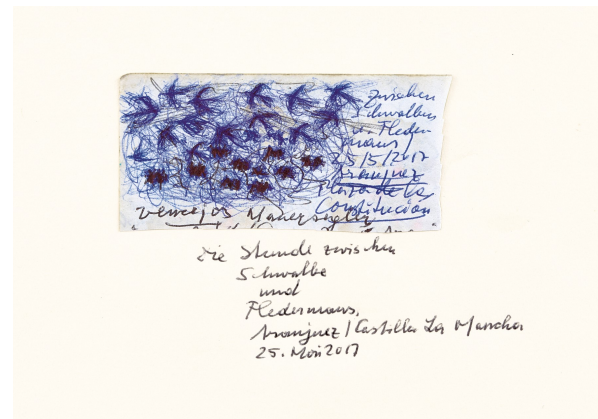 zwischen
Schwalbe
u. Fleder-
maus /
25/5/2017
Aranjuez
Plaza de la
Constitución
vencejos Mauersegler
Die Stunde zwischen
Schwalbe
und
Fledermaus,
Aranjuez / Castilla La Mancha
25. Mai 2017